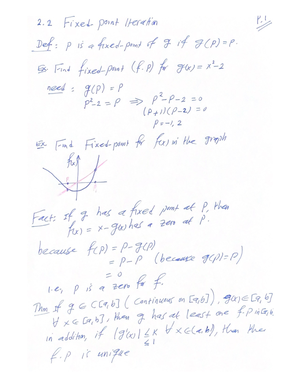 2.2 Fixed-point Iteration
P.1
Def: P is a fixed-point of g if g(P)=P.
Ex. Find fixed-point (f.P) for g(x)=x²-2
need: g(P)=P
P²-2=P ⇒ P²-P-2=0
(P+1)(P-2)=0
P=-1,2
Ex. Find Fixed-point for f(x) in the graph
f(x)
Fact: If g has a fixed point at P, then
f(x) = x-g(x) has a zero at P.
because f(P) = P-g(P)
= P-P (because g(P)=P)
= 0
i.e, P is a zero for f.
Thm If g ∈ C[a,b] (continuous on [a,b]), g(x)∈[a,b]
∀ x∈[a,b], then g has at least one f.p in [a,b]
in addition, if |g'(x)| ≤ K ∀ x∈(a,b), then the
<1
f.P is unique